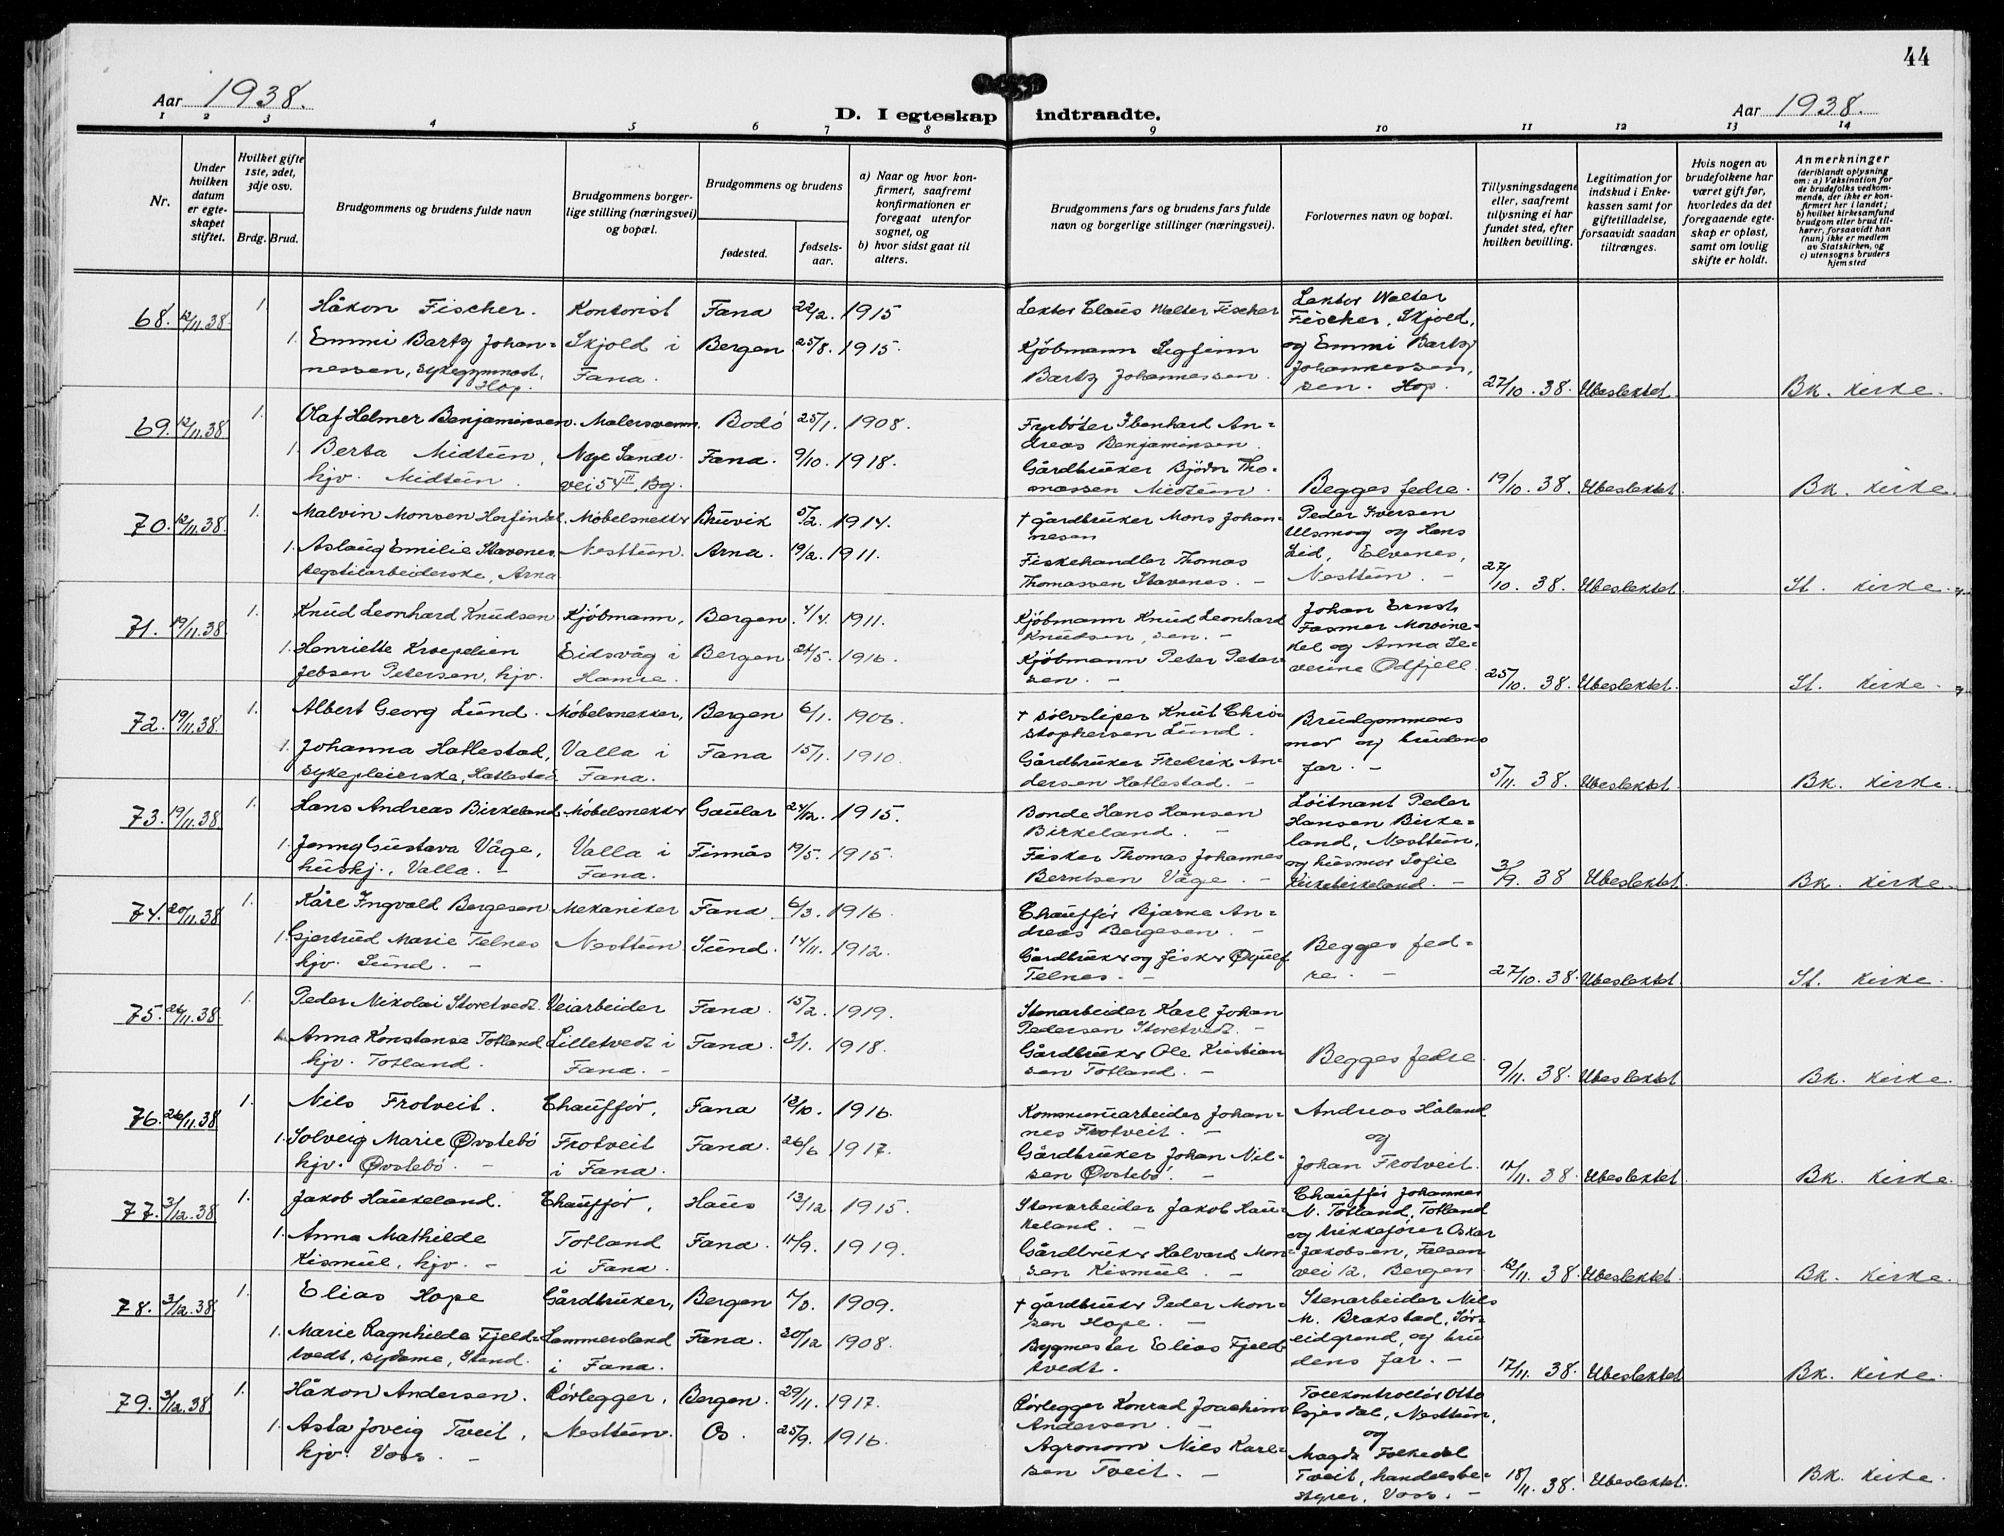 44
Aar 1938.
D. I egteskap indtraadte.
Aar 1938.
1 2 3 4 5 6 7 8 9 10 11 12 13 14
Nr.
Under hvilken datum er egteskapet stiftet.
Hvilket gifte 1ste, 2det, 3dje osv.
Brdg. Brud.
Brudgommens og brudens fulde navn
Brudgommens borgerlige stilling (næringsvei) og bopæl.
Brudgommens og brudens
fødested.
fødselsaar.
a) Naar og hvor konfirmert, saafremt konfirmationen er foregaat utenfor sognet, og
b) hvor sidst gaat til alters.
Brudgommens fars og brudens fars fulde navn og borgerlige stillinger (næringsvei).
Forlovernes navn og bopæl.
Tillysningsdagene eller, saafremt tillysning ei har fundet sted, efter hvilken bevilling.
Legitimation for indskud i Enkekassen samt for giftetilladelse, forsaavidt saadan tiltrænges.
Hvis nogen av brudefolkene har været gift før, hvorledes da det foregaaende egteskap er opløst, samt om lovlig skifte er holdt.
Anmerkninger (deriblandt oplysning om: a) Vaksination for de brudefolks vedkommende, der ikke er konfirmert her i landet; b) hvilket kirkesamfund brudgom eller brud tilhører, forsaavidt han (hun) ikke er medlem av Statskirken, og c) utensogns bruders hjemsted
68. 12/11.38 1. Håkon Fischer. Kontorist Fana 22/2. 1915 Lektor Claus Walter Fischer Lektor Walter Fischer, Skjold,
1. Emmi Bartz Johannessen, sykegymnast, Hop. Skjold i Fana. Bergen 25/8. 1915. Kjøbmann Sigfinn Bartz Johannessen. og Emmi Bartz Johannessen. Hop. 27/10. 38. Ubeslektet. Bk. kirke.
69. 12/11.38 1. Olaf Helmer Benjaminsen. Malersvenn. Bodö 25/1. 1908. Fyrbøter Ibenhard Andreas Benjaminsen.
1. Berta Midtun, hjv. Midtun. Nye Sandv. vei 54 II, Bg. Fana. 9/10. 1918. Gårdbruker Thomassen Midtun. Begges fedre. 19/10. 38. Ubeslektet. Bk. kirke.
70. 12/11.38 1. Malvin Monsen Herfindal. Møbelsnekker Bruvik 5/2. 1914. † gårdbruker Mons Johannesen Peder Iversen Ulsmog og Hans
1. Aslaug Emilie Stavenes tegstilarbeiderske, Arna Nesttun. Arna. 19/2. 1911. Fiskehandler Thomas Thomassen Stavenes. – Lid, Elvenes, Nesttun. – 27/10. 38. Ubeslektet St. kirke.
71. 19/11.38 1. Knud Leonhard Knudsen Kjøbmann, Bergen. 4/4. 1911. Kjøbmann Knud Leonhard Knudsen, sen. – Johan Ernst Fasmer Mowinckel og Anna Severine Odfjell.
1. Henriette Kroepelien Jebsen Petersen, hjv. Eidsvåg i Hamre. Bergen 24/5. 1916. Kjøbmann Peter Petersen. – 25/10. 38. Ubeslektet. St. kirke.
72. 19/11.38 1. Albert Georg Lund. Møbelsnekker, Bergen 6/1. 1906. † sølvsliper Knut Christophersen Lund. Brudgommens mor og brudens far. –
1. Johanna Hatlestad, sykepleierske, Hatlestad Valla i Fana. Fana 15/1. 1910. Gårdbruker Fredrik Andersen Hatlestad. – 5/11. 38 Ubeslektet. Bk. kirke.
73. 19/11.38 1. Hans Andreas Birkeland. Møbelsnekker Gaular 24/12. 1915. Bonde Hans Hansen Birkeland. – Løitnant Peder Hansen Birkeland, Nesttun,
1. Jenny Gustava Våge, hushj., Valla. – Valla i Fana. Finnås 19/5. 1915. Fisker Thomas Johannes Berntsen Våge. – og husmor Sofie Birkeland. – 3/9. 38 Ubeslektet. Bk. kirke
74. 20/11.38 1. Kåre Ingvald Bergesen Mekaniker Fana. 6/3. 1916. Chauffør Bjarne Andreas Bergesen. –
1. Gjertrud Marie Telnes hjv. Sund. – Nesttun. Sund. 14/11. 1912. Gårdbruker og fisker Telnes. – Begges fedre. – 27/10. 38. Ubeslektet St. kirke.
75. 26/11.38 1. Peder Nikolai Storetvedt. Veiarbeider Fana. 15/2. 1919. Stenarbeider Karl Johan Pedersen Storetvedt. –
1. Anna Konstanse Totland hjv. Totland. Lilletvedt i Fana. – Fana. 3/1. 1918. Gårdbruker Ole Kristiansen Totland. – Begges fedre. 9/11. 38. Ubeslektet Bk. kirke.
76. 26/11.38 1. Nils Frotveit. Chauffør, Fana 12/10. 1916. Kommunearbeider Johannes Frotveit. – Andreas Håland og
1. Solveig Marie Øvstebö hjv. Øvstebö. – Frotveit i Fana. Fana. 26/6 1917. Gårdbruker Johan Nilsen Øvstebö. – Johan Frotveit. 11/11. 38. Ubeslektet. Bk. kirke.
77. 3/12.38 1. Jakob Haukeland. Chauffør, Haus 13/12 1915. Stenarbeider Jakob Haukeland. – Chauffør Johannes N. Totland, Totland
1. Anna Mathilde Kismul, hjv. – Totland i Fana. Fana. 11/9. 1919. Gårdbruker Halvard Monsen Kismul. – og trikkefører Oskar Jakobsen, Falsen vei 12, Bergen 12/11. 38. Ubeslektet. Bk. kirke.
78. 3/12.38 1. Elias Hope Gårdbruker, Bergen 1909. † gårdbruker Peder Monsen Hope. – Stenarbeider Nils M. Brakstad,
1. Marie Ragnhilda Fjeldtvedt, sydame, Stend. Lammersland i Fana. Fana. 20/12 1908. Bygmester Elias Fjeldtvedt. og brudens far. – 17/11. 38 Ubeslektet. Bk. kirke.
79. 3/12.38 1. Håkon Andersen. Rørlegger, Bergen. 29/11. 1917. Rørlegger Konrad Joachim Andersen. – Tollkontrollør Otto Gjesdal, Nesttun, og
1. Asta Joveig Tveit, hjv. Voss. – Nesttun. Os. 25/9. 1916. Agronom Nils Karlsen Tveit. – Magda Folkedal Tveit, handelsbestyrer, Voss. – 18/11. 38. Ubeslektet Bk. kirke.